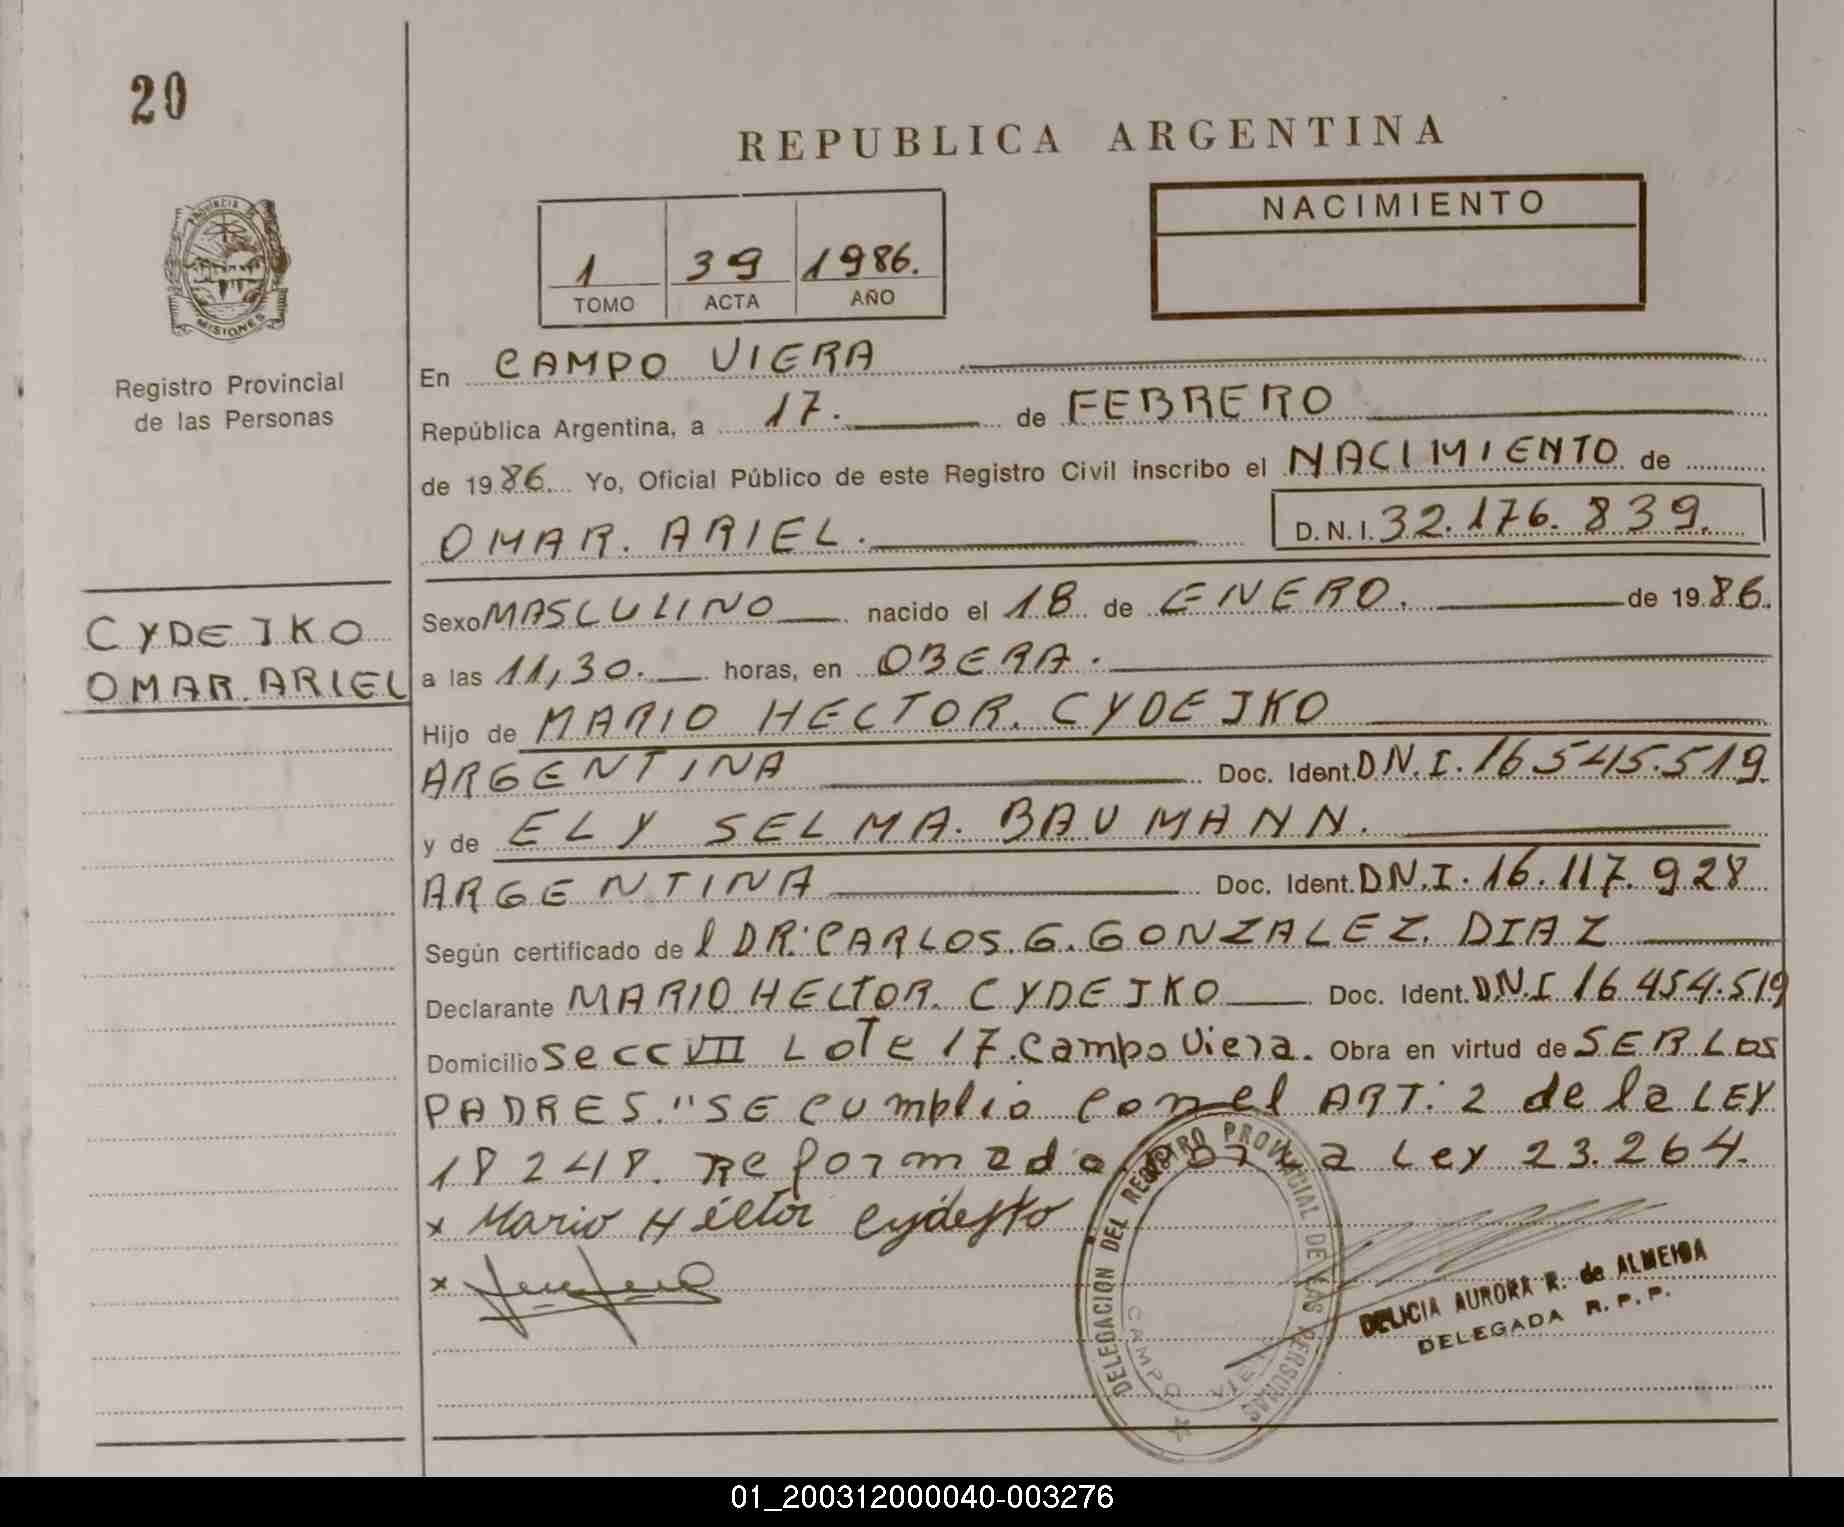 20
REPUBLICA ARGENTINA
PROVINCIA DE
MISIONES
Registro Provincial
de las Personas
1 39 1986.
TOMO ACTA AÑO
NACIMIENTO
En CAMPO VIERA
República Argentina, a 17. de FEBRERO
de 1986. Yo, Oficial Público de este Registro Civil inscribo el NACIMIENTO de
OMAR. ARIEL. D.N.I. 32.176.839.
CYDEJKO
OMAR. ARIEL
Sexo MASCULINO nacido el 18 de ENERO. de 1986.
a las 11,30. horas, en OBERA.
Hijo de MARIO HECTOR. CYDEJKO
ARGENTINA Doc. Ident. D.N.I. 16.545.519
y de ELY SELMA. BAUMANN.
ARGENTINA Doc. Ident. D.N.I. 16.117.928
Según certificado de l DR. CARLOS. G. GONZALEZ. DIAZ
Declarante MARIO HECTOR. CYDEJKO Doc. Ident. D.N.I 16 454.519
Domicilio Secc VII LOTE 17. Campo Viera. Obra en virtud de SER LOS
PADRES. "SE cumplio con el ART: 2 de la LEY
18248. Reformado por la Ley 23.264.
x Mario Héctor Cydejko
x
DELEGACION DEL REGISTRO PROVINCIAL DE LAS PERSONAS
CAMPO VIERA
DELICIA AURORA R. de ALMEIDA
DELEGADA R.P.P.
01_200312000040-003276